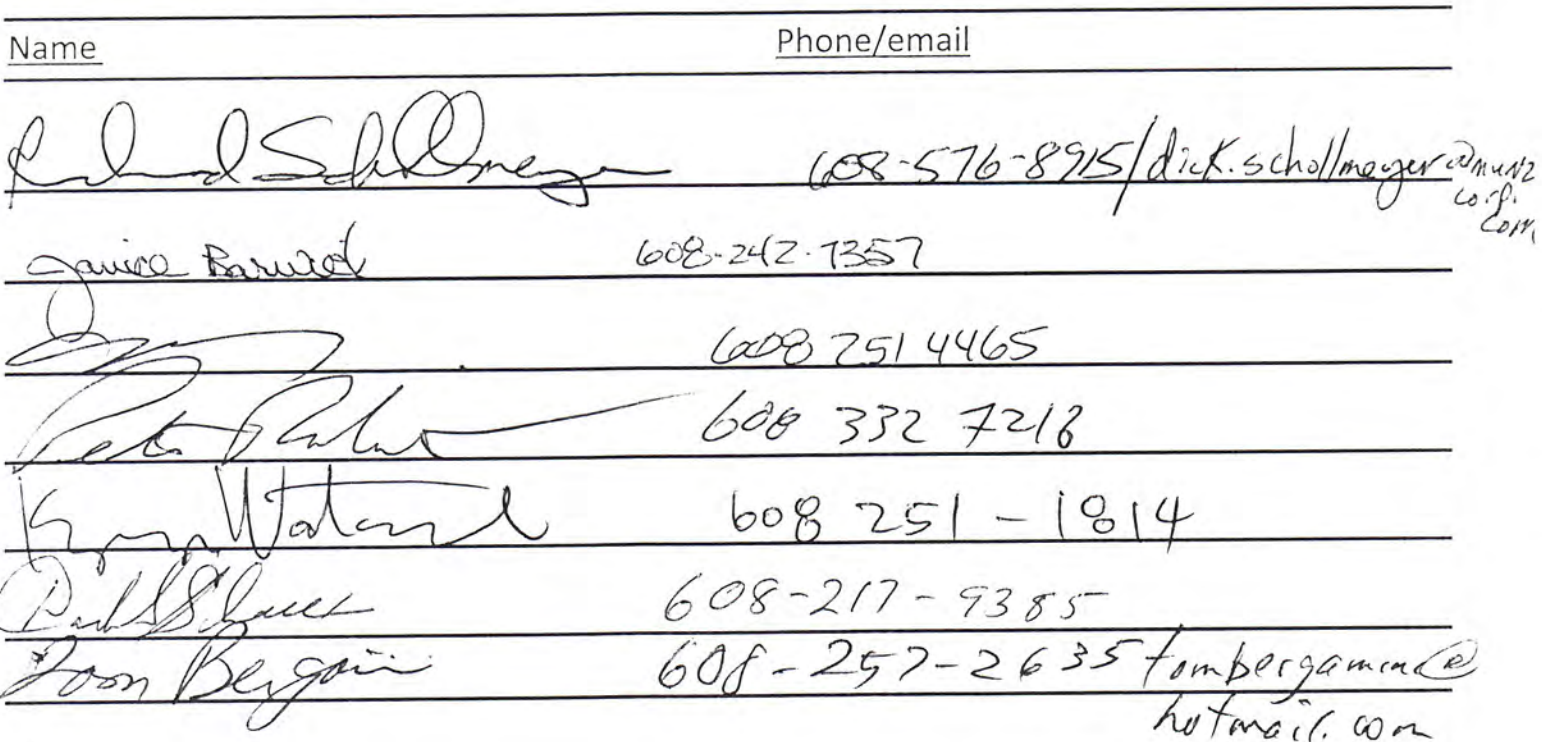 Name Phone/email
Richard Schollmeyer 608-576-8915/dick.schollmeyer@munz
corp.
com
Janice 608-242-7357
608 251 4465
Peter 608 332 7218
608 251-1814
608-217-9385
Tom 608-257-2635 tombergamin@
hotmail.com